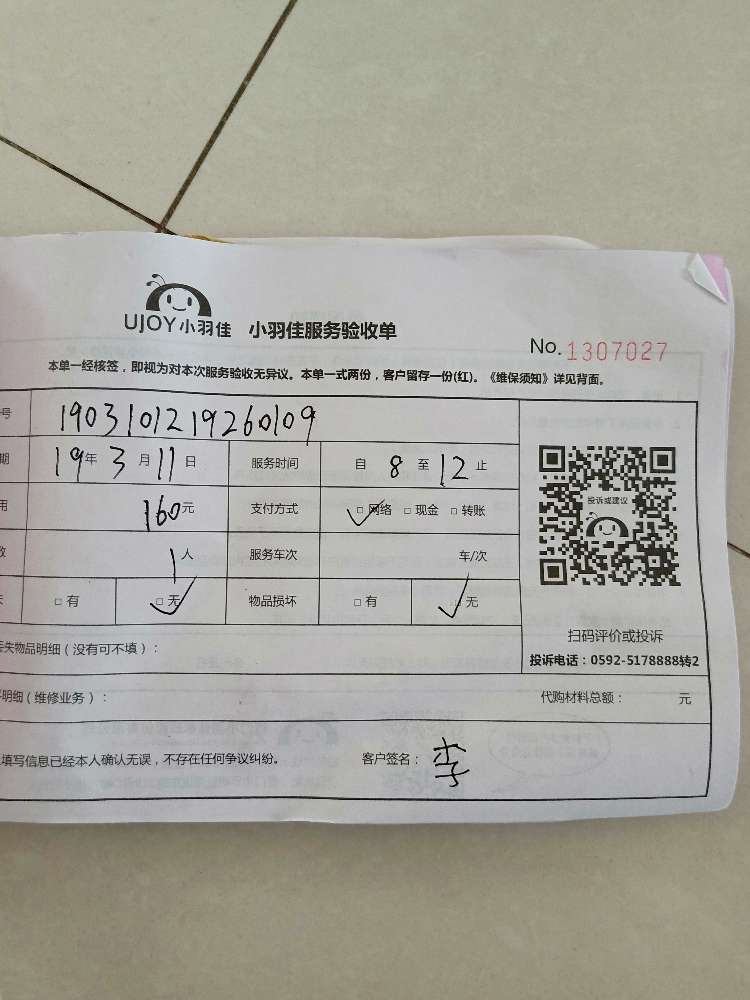 UJOY小羽佳 小羽佳服务验收单
No. 1307027
本单一经核签，即视为对本次服务验收无异议。本单一式两份，客户留存一份(红)。《维保须知》详见背面。
号 1903101219260109
期 19年3月11日 服务时间 自 8 至 12 止
用 160元 支付方式 ☑网络 □现金 □转账
数 1人 服务车次 车/次
失 □有 ☑无 物品损坏 □有 ☑无
投诉或建议
扫码评价或投诉
投诉电话：0592-5178888转2
丢失物品明细（没有可不填）：
明细（维修业务）： 代购材料总额： 元
填写信息已经本人确认无误，不存在任何争议纠纷。 客户签名：李